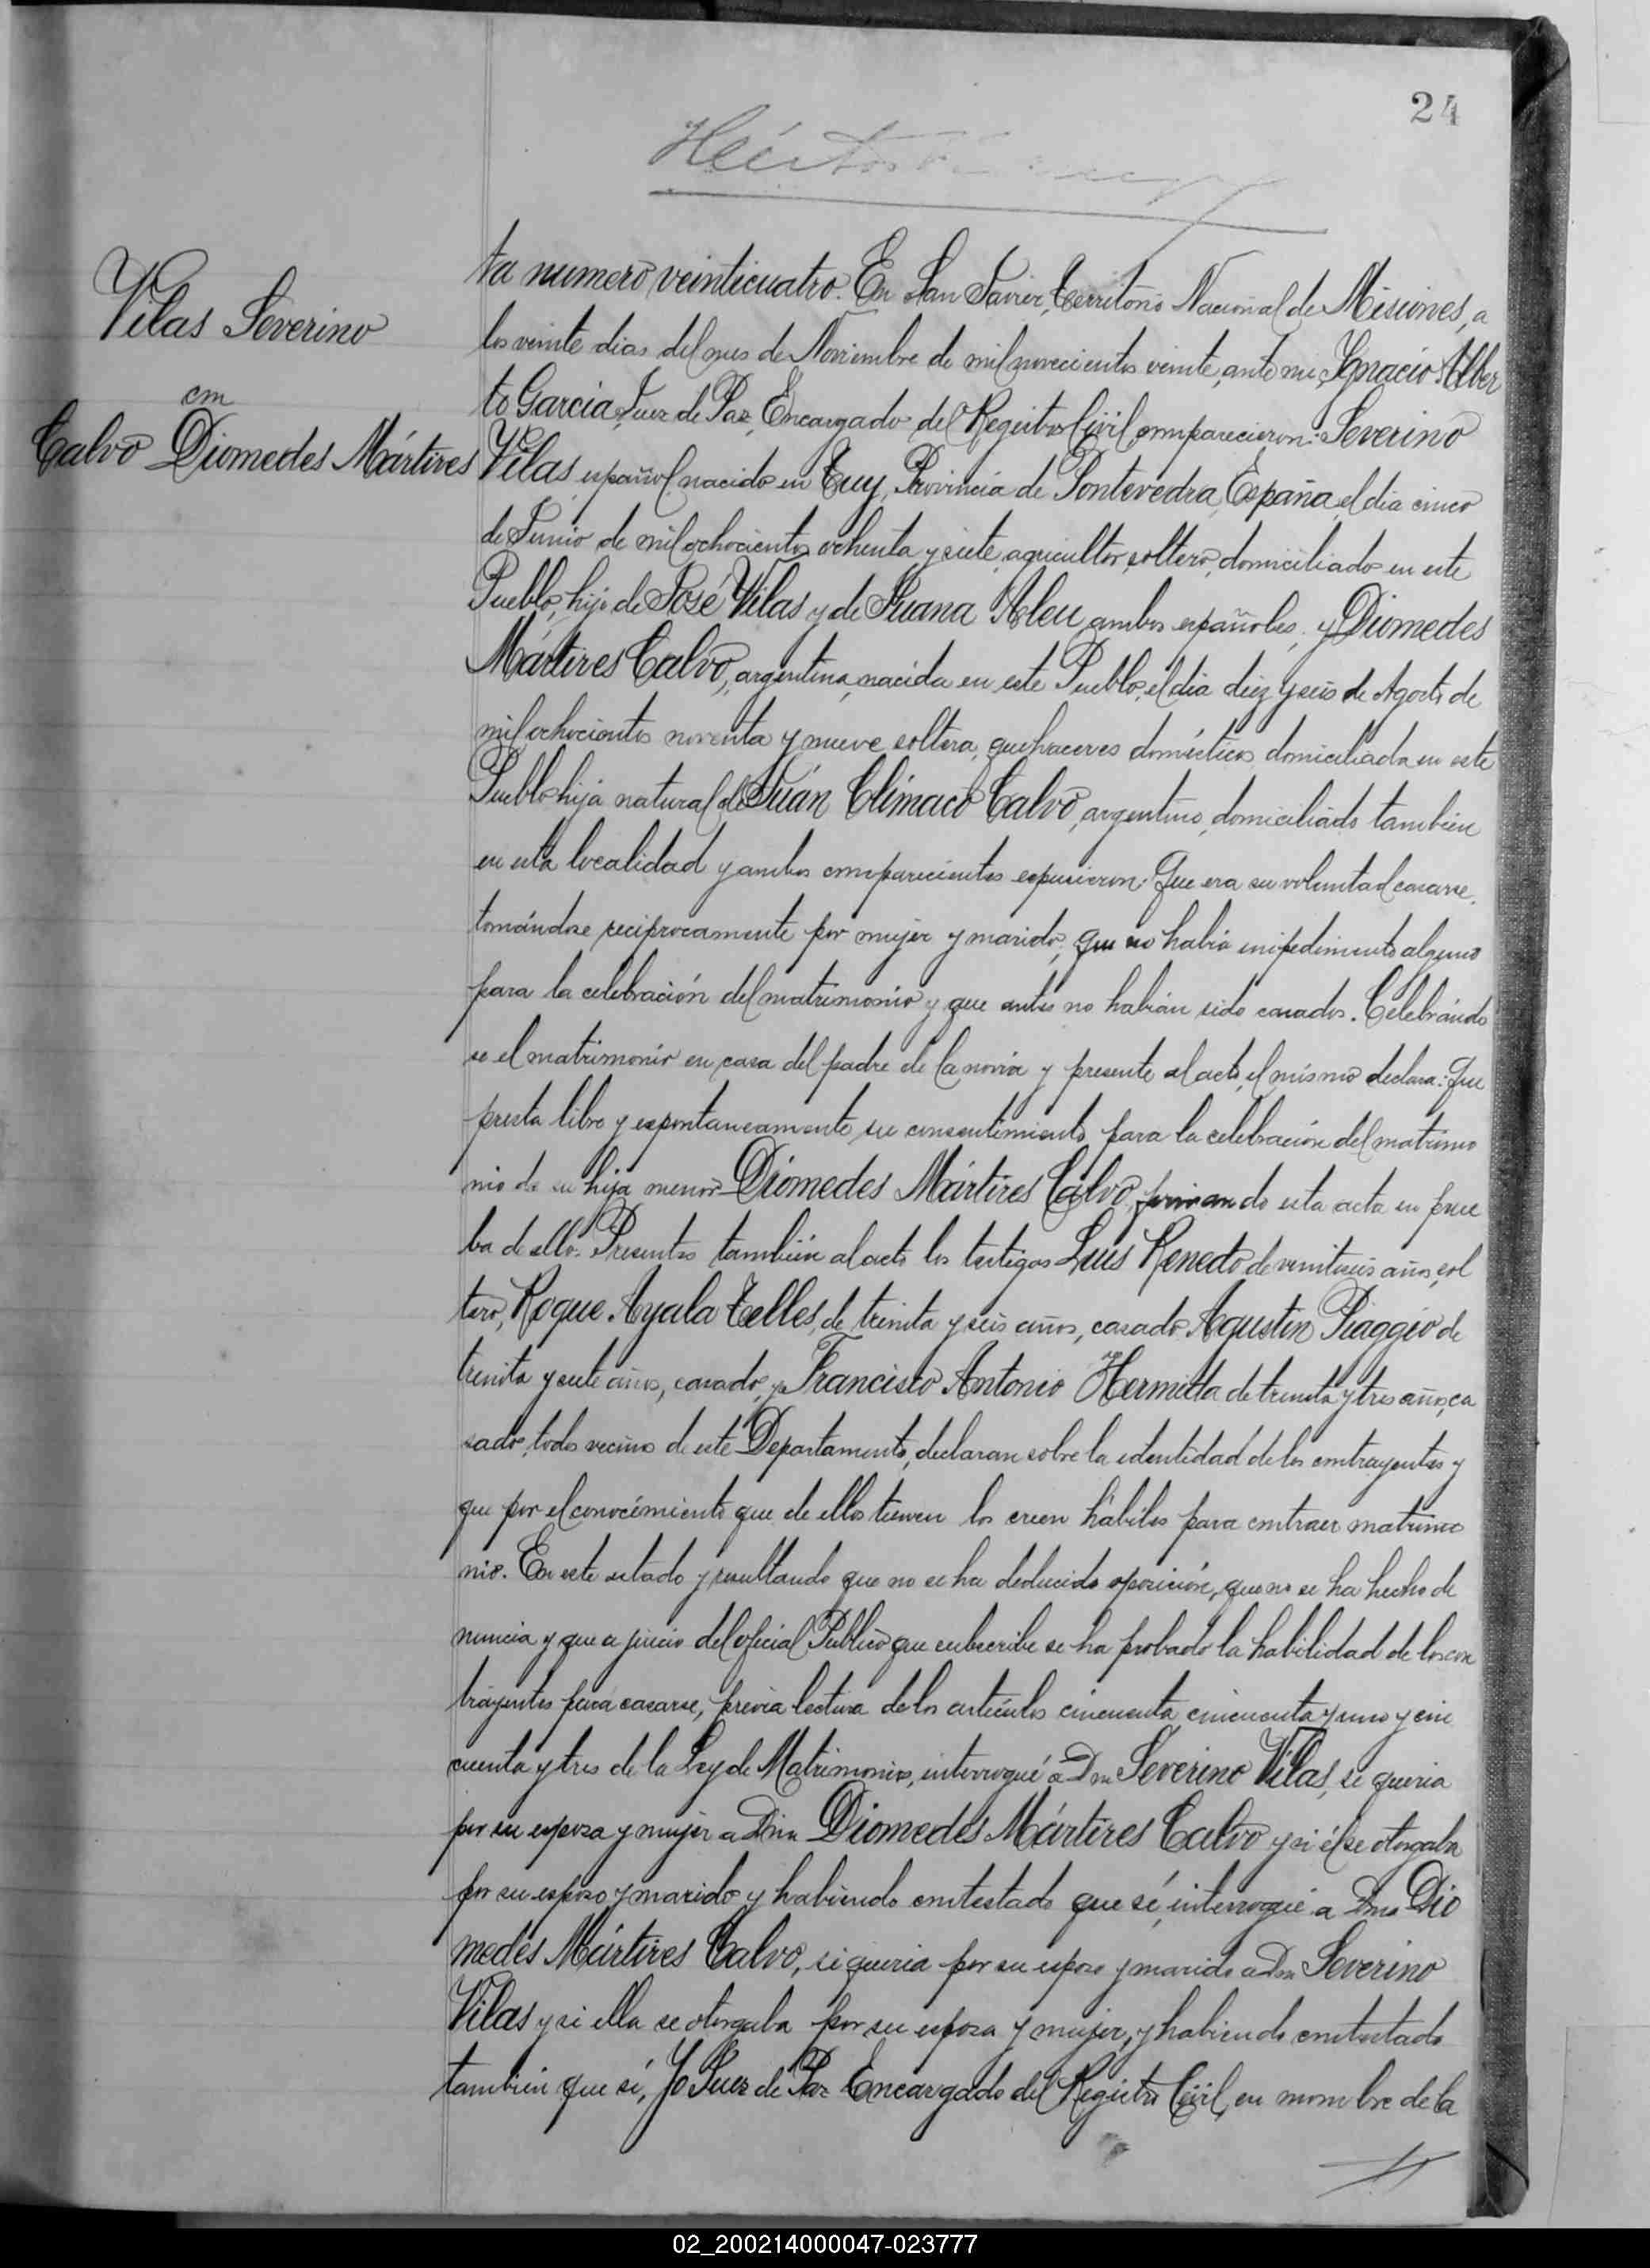 24
Vilas Severino
con
Calvo Diomedes Mártires
ta numero veinticuatro. En San Javier, Territorio Nacional de Misiones, a
los veinte dias del mes de Noviembre de mil novecientos veinte, ante mi, Ignacio Alber
to Garcia, Juez de Paz, Encargado del Registro Civil, comparecieron: Severino
Vilas, español, nacido en Tuy, Provincia de Pontevedra, España, el dia cinco
de Junio de mil ochocientos ochenta y siete, agricultor, soltero, domiciliado en este
Pueblo, hijo de José Vilas y de Juana Aleu, ambos españoles, y Diomedes
Mártires Calvo, argentina, nacida en este Pueblo, el dia diez y seis de Agosto de
mil ochocientos noventa y nueve, soltera, quehaceres domésticos, domiciliada en este
Pueblo, hija natural de Juán Climaco Calvo, argentino, domiciliado también
en esta localidad y ambos comparecientes expusieron: Que era su voluntad casarse,
tomándose reciprocamente por mujer y marido, que no habia impedimento alguno
para la celebración del matrimonio y que antes no habian sido casados. Celebrándo
se el matrimonio en casa del padre de la novia y presente al acto, el mismo declara: Que
presta libre y espontaneamente, su consentimiento para la celebración del matrimo
nio de su hija menor Diomedes Mártires Calvo, firmando esta acta en prue
ba de ello. Presentes también al acto los testigos Luis Renedo de veintiseis años, sol
tero, Roque Ayala Telles, de treinta y seis años, casado, Agustin Piaggio de
treinta y siete años, casado, y Francisco Antonio Hermitta de treinta y tres años, ca
sado, todos vecinos de este Departamento, declaran sobre la identidad de los contrayentes y
que por el conocimiento que de ellos tienen los creen hábiles para contraer matrimo
nio. En este estado y resultando que no se ha deducido oposición, que no se ha hecho de
nuncia y que a juicio del oficial Público que subscribe se ha probado la habilidad de los con
trayentes para casarse, previa lectura de los artículos cincuenta, cincuenta y uno y cin
cuenta y tres de la Ley de Matrimonio, interrogué a Don Severino Vilas, si queria
por su esposa y mujer a Dña Diomedes Mártires Calvo y si él se otorgaba
por su esposo y marido, y habiendo contestado que sí, interrogué a Dña Dio
medes Mártires Calvo, si queria por su esposo y marido a Don Severino
Vilas y si ella se otorgaba por su esposa y mujer, y habiendo contestado
también que si, Yo Juez de Paz Encargado del Registro Civil, en nombre de la
02_200214000047-023777